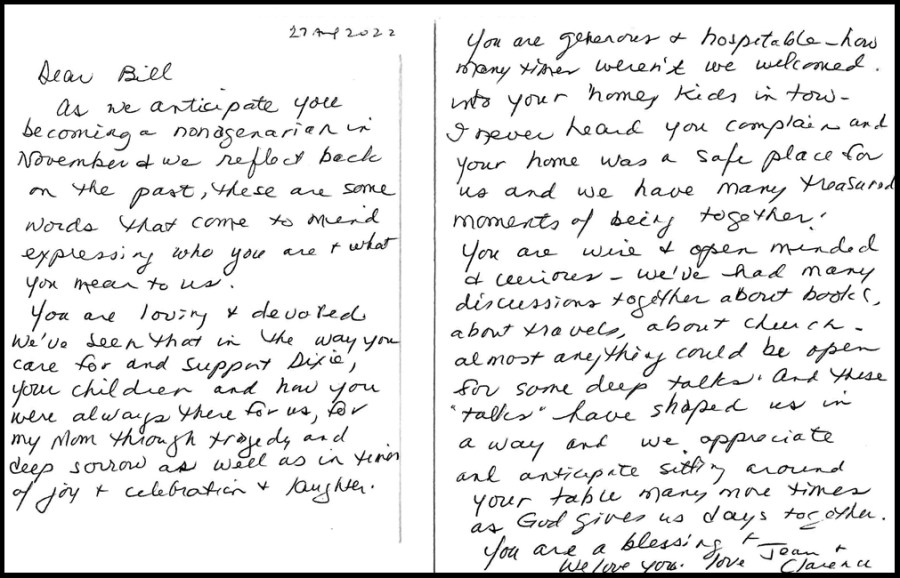 27 Aug 2022
Dear Bill
As we anticipate you
becoming a nonagenarian in
November & we reflect back
on the past, these are some
words that come to mind
expressing who you are + what
you mean to us.
You are loving + devoted
We've seen that in the way you
care for and support Dixie,
your children and how you
were always there for us, for
my Mom through tragedy and
deep sorrow as well as in times
of joy + celebration + laughter.
You are generous & hospitable - how
many times weren't we welcomed
into your home, kids in tow -
I never heard you complain and
your home was a safe place for
us and we have many treasured
moments of being together!
You are wise & open minded
& curious - we've had many
discussions together about books,
about travels, about church -
almost anything could be open
for some deep talks. And these
"talks" have shaped us in
a way and we appreciate
and anticipate sitting around
your table many more times
as God gives us days together.
You are a blessing +
We love you. love Joan +
Clarence